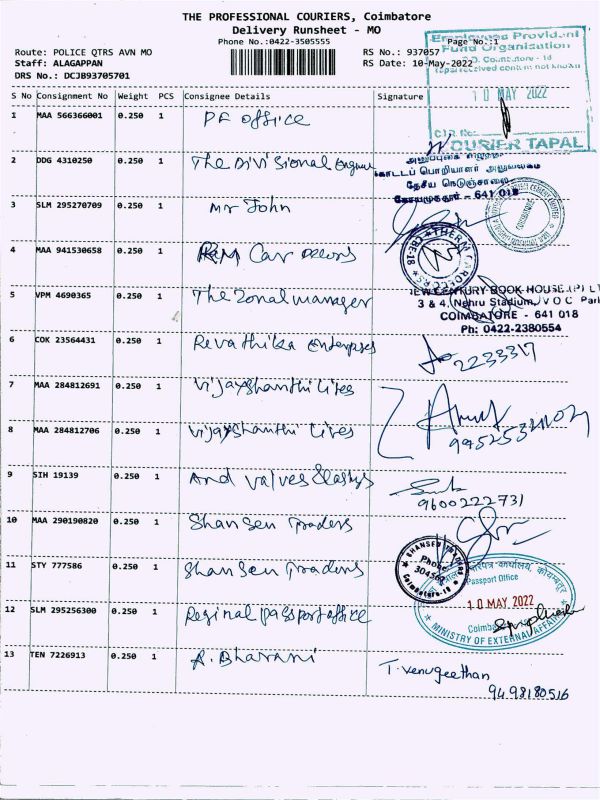 THE PROFESSIONAL COURIERS, Coimbatore
Delivery Runsheet - MO
Phone No.:0422-3505555
Page No.:1
Route: POLICE QTRS AVN MO
RS No.: 937057
Staff: ALAGAPPAN
RS Date: 10-May-2022
DRS No.: DCJB93705701
Employees Provident
Fund Organisation
10 MAY 2022
COURIER TAPAL
S No Consignment No Weight PCS Consignee Details Signature
1 MAA 566366001 0.250 1 PF office
2 DDG 4310250 0.250 1 The Divisional Engineer
கோட்டப் பொறியாளர் அலுவலகம்
தேசிய நெடுஞ்சாலை
கோயமுத்தூர் - 641 018
3 SLM 295270709 0.250 1 Mr John
4 MAA 941530658 0.250 1 Car
5 VPM 4690365 1 The Zonal manager
NEW CENTURY BOOK HOUSE (P) LT
3 & 4, Nehru Stadium, V O C Park
COIMBATORE - 641 018
Ph: 0422-2380554
6 COK 23564431 0.250 1 Revathika Enterprises
2233317
7 MAA 284812691 0.250 1 Vijayshanthi
8 MAA 284812706 0.250 1 Vijayshanthi
9 SIH 19139 0.250 1 And valves
9600222731
10 MAA 290190820 0.250 1 Shansen Traders
11 STY 777586 0.250 1 Shansen Traders
SHANSEN TRADERS
Phone
Coimbatore-18
Passport Office
10 MAY 2022
MINISTRY OF EXTERNAL AFFAIRS
12 SLM 295256300 0.250 1 Reginal passport office
13 TEN 7226913 0.250 1 A. Bharani
T. Venugeethan
9498180516